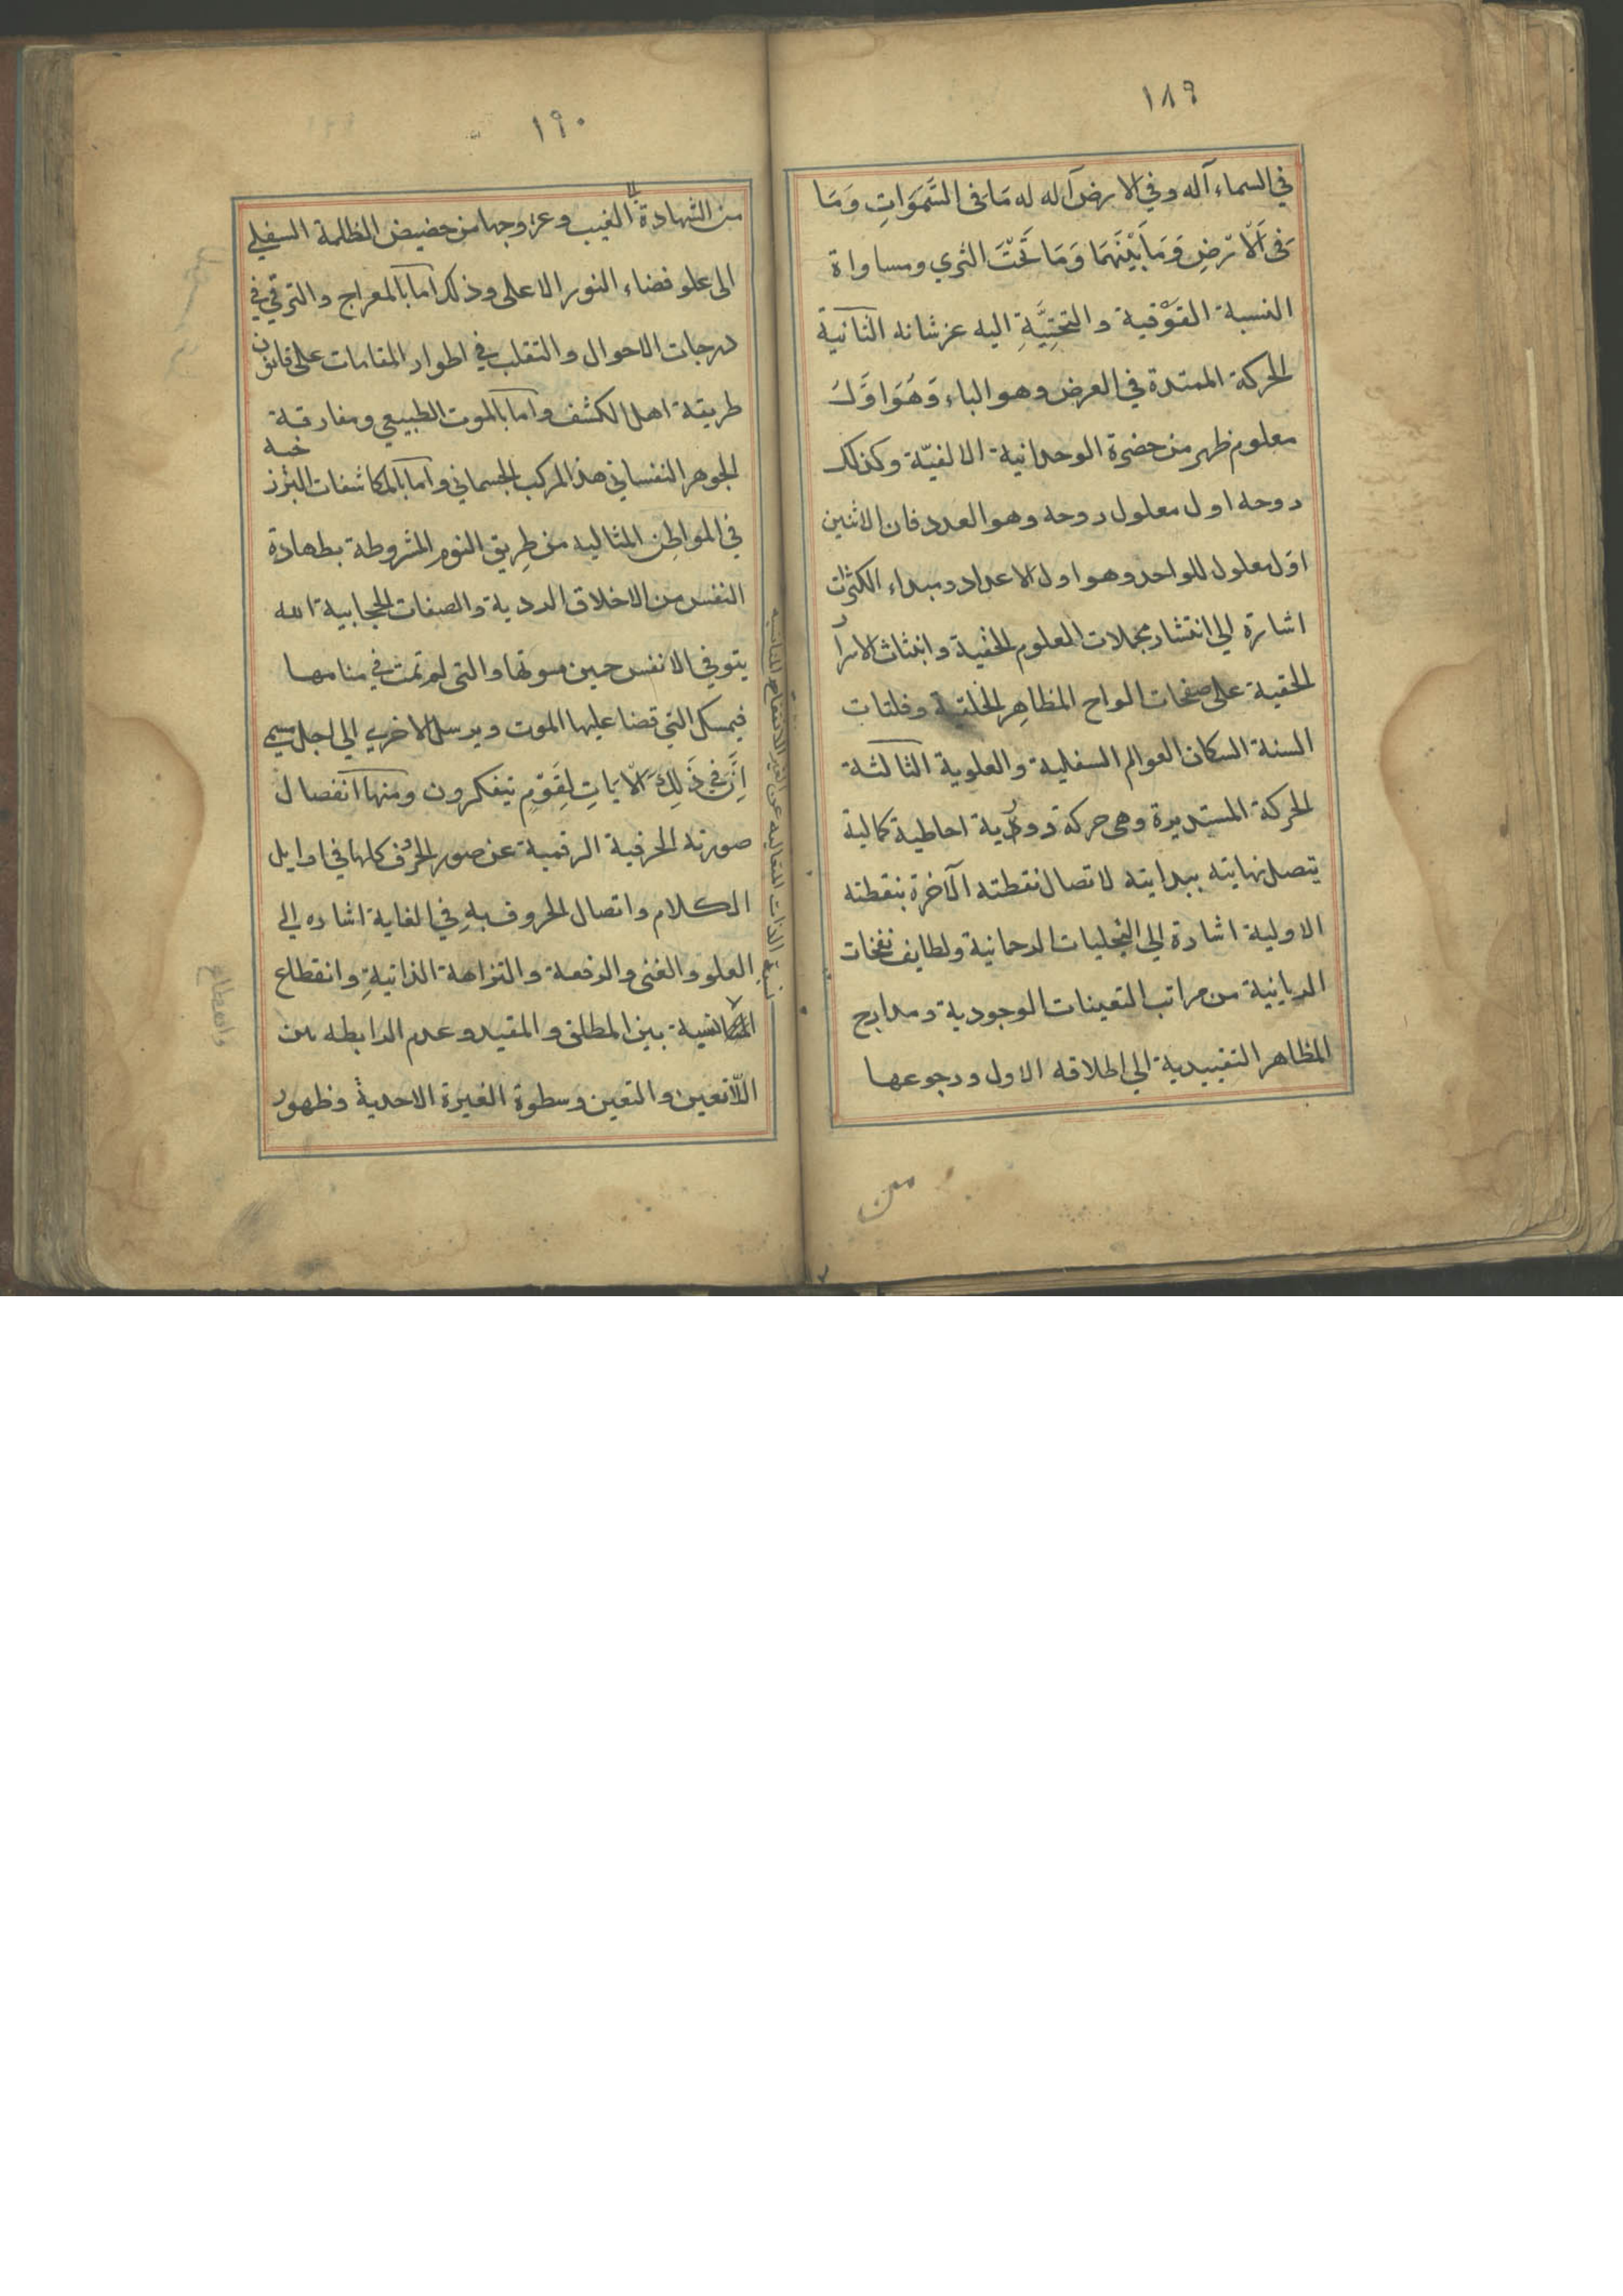 ١٨٩
في السماء آله وفي الارض آله له مَا فى السَّمَوَاتِ وَمَا
فى اَلاَرْضِ وَمَا بَيْنَهَمَا وَمَا تَحْتَ الثري ومساواة
النسبة الفَوْقية والتحتِيَّةِ اليه عز شانه الثانية
الحركة الممتدة في العرض وهو الباء وَهُوَ اوَّلُ
معلوم ظهر من حضرة الوحدانية الالفيّة وكذلك
روحه اول معلول روحه وهو العدد فان الاثنين
اوّل معلول للواحد وهو اول الاعداد ومبداء الكثرات
اشارة الي انتشار مجملات العلوم الخفية وانبثاث الاسرار
الحقية على صفحات الواح المظاهِر الخلقية وفلتات
السنة السكان العوالم السفلية والعلوية الثالثة
الحركة المستديرة وهى حركة دورية احاطية كمالية
يتصل نهايته ببدايته لاتصال نقطته الآخرة بنقطته
الاولية اشارة الي التجليات الرحمانية ولطايف نفخات
الربانية من مراتب التعينات الوجودية ومدارج
المظاهر التقييدية الي اطلاقه الاول ورجوعها
من
١٩٠
من الشهادة الى الغيب وعزوجها من حضيض الظلمة السفلي
الى علو فضاء النور الاعلى وذلك اما بالمعراج والترقي في
درجات الاحوال والتقلب في اطوار المقامات على قانون
طريقة اهل الكشف واما بالموت الطبيعي ومفارقة
الجوهر النفساني هذا المركب الجسماني واما بالمكاشفات البرزخيه
في المواطِن المثاليه من طِريق النوم المشروطة بطهارة
النفس من الاخلاق الردية والصفات الحجابية الله
يتوفي الانفس حين موتها والتى لم تمت في منامها
فيمسك التي قضا عليها الموت ويرسل الاخري الى اجل مسمي
اِنَّ فى ذَلِكَ لَاَيَاتِ لِقَوْمٍ يتفكرون ومنها انفصال
صورته الحرفية الرقمية عن صور الحروف كلها في اوايل
الكلام واتصال الحروف بهِ في الغاية اشاره الي
العلو والغنى والرفعة والنزاهة الذاتيةِ وانقطاع
بين المطلق والمقيد وعدم الرابطه بين
اللّاتعين والتعين وسطوة الغيرة الاحدية وظهور
نسبة الذات المتعاليه عن الغير
وانقطاع